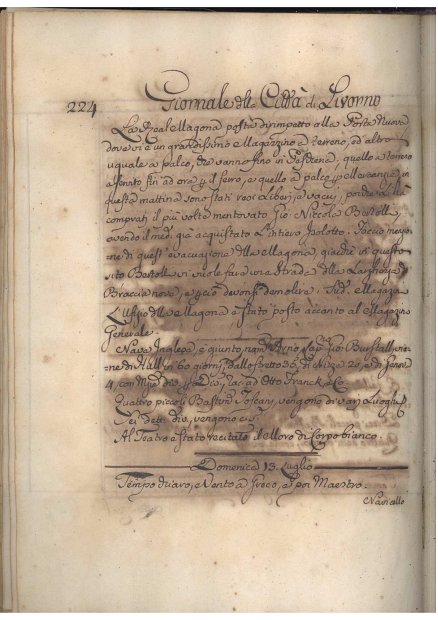 224
Giornale della Città di Livorno
La Real Magona posta dirimpetto alla Porta Nuova
dove vi è un grandissimo Magazzino a terreno, ed altro
uguale a palco, che vanno fino in Fortezza, quello a terreno
fin ad ora il ferro, e quello a palco
questa mattina sono stati resi liberi, e vacui, perchè
comprati il più volte mentovato Sig. Niccolo Bertolli
avendo il med. già acquistato l'intiero Isolotto. Faccio menzio-
ne di questi evacuazione della Magona, giacchè in questo
sito Bertolli vi vuole fare una Strada della Larghezza
Braccia nove, e perciò devonsi demolire i Sud. Magazz.
L'Ufizio della Magona è stato posto accanto al Magazzino
Generale.
Nave Inglesa è giunta, nom. Arno, Cap. Gio Burstall, viene
ne di Hull in 60 giorni, dallo stretto 35, di Nizza 20, e di Genova
4, con Mzi div. racc. a Otto Franck, e C.
Quattro piccoli Bastim. Toscani, vengono di varj Luoghi.
Sei detti div. vengono
Al Teatro è stato recitato il Moro di Corpo bianco.
Domenica 13. Luglio
Tempo chiaro, e Vento a Greco, e poi Maestro.
Navicello